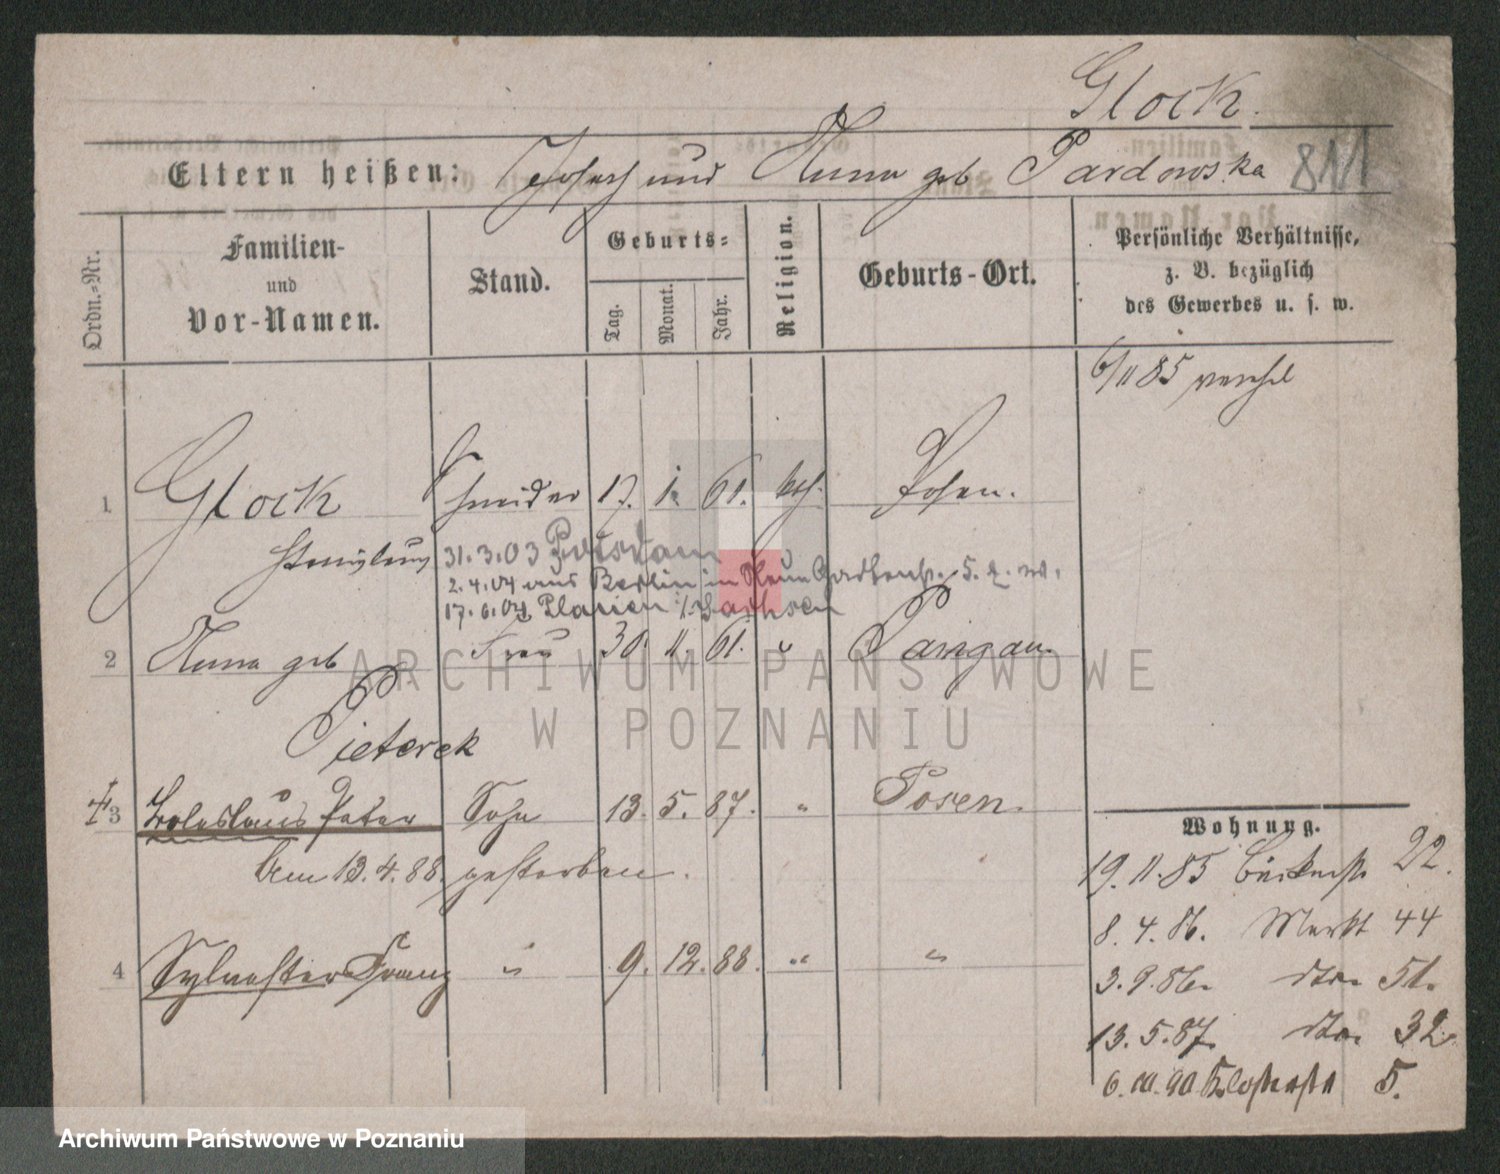 Glock.
Eltern heißen: Joseph und Anna geb Pardowska 811
Ordn.-Nr.
Familien-
und
Vor-Namen.
Stand.
Geburts-
Tag.
Monat.
Jahr.
Religion.
Geburts-Ort.
Persönliche Verhältnisse,
z. B. bezüglich
des Gewerbes u. s. w.
6/11 85
1 Glock Schneider 17. 1. 61. kath. Posen.
Stanislaus
31.3.03 Potsdam
2.4.04 aus Berlin in
17.6.04
2 Anna geb Frau 30. 11. 61. "
Pieterek
3 Boleslaus Peter Sohn 13. 5. 87. " Posen.
Am 13.4.88. gestorben.
4 Sylvester Franz " 9. 12. 88. " "
Wohnung.
19.11.85 22.
8.4.86. Markt 44
3.9.86. dto. 51.
13.5.87. dto. 32
Klosterstr 5.
ARCHIWUM PAŃSTWOWE
W POZNANIU
Archiwum Państwowe w Poznaniu